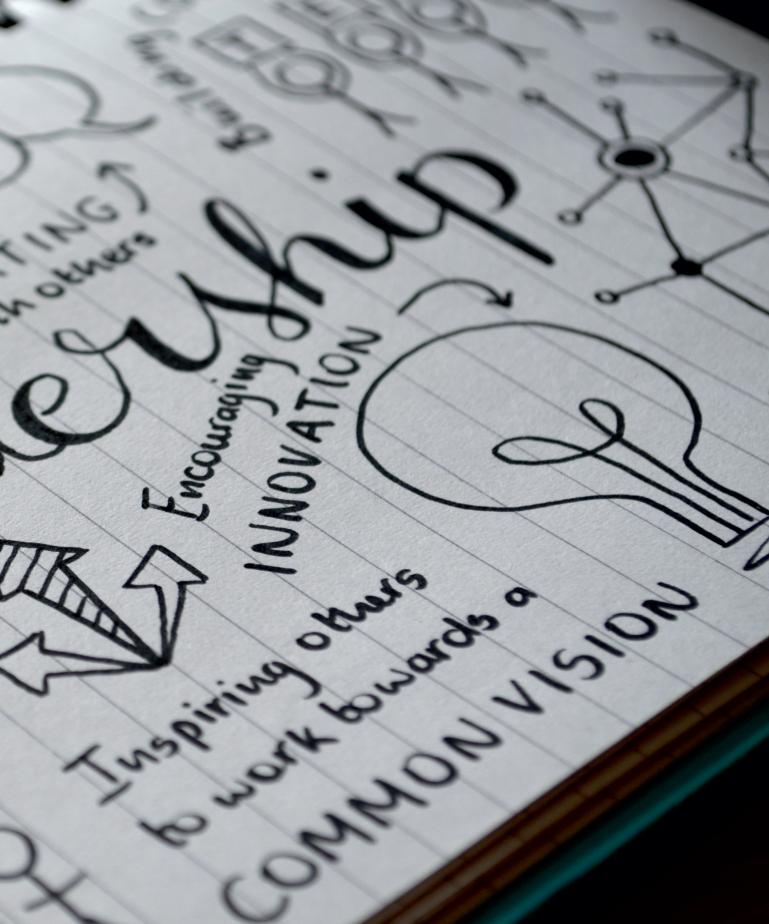 Building
TING
others
ership
Encouraging
INNOVATION
Inspiring others
to work towards a
COMMON VISION